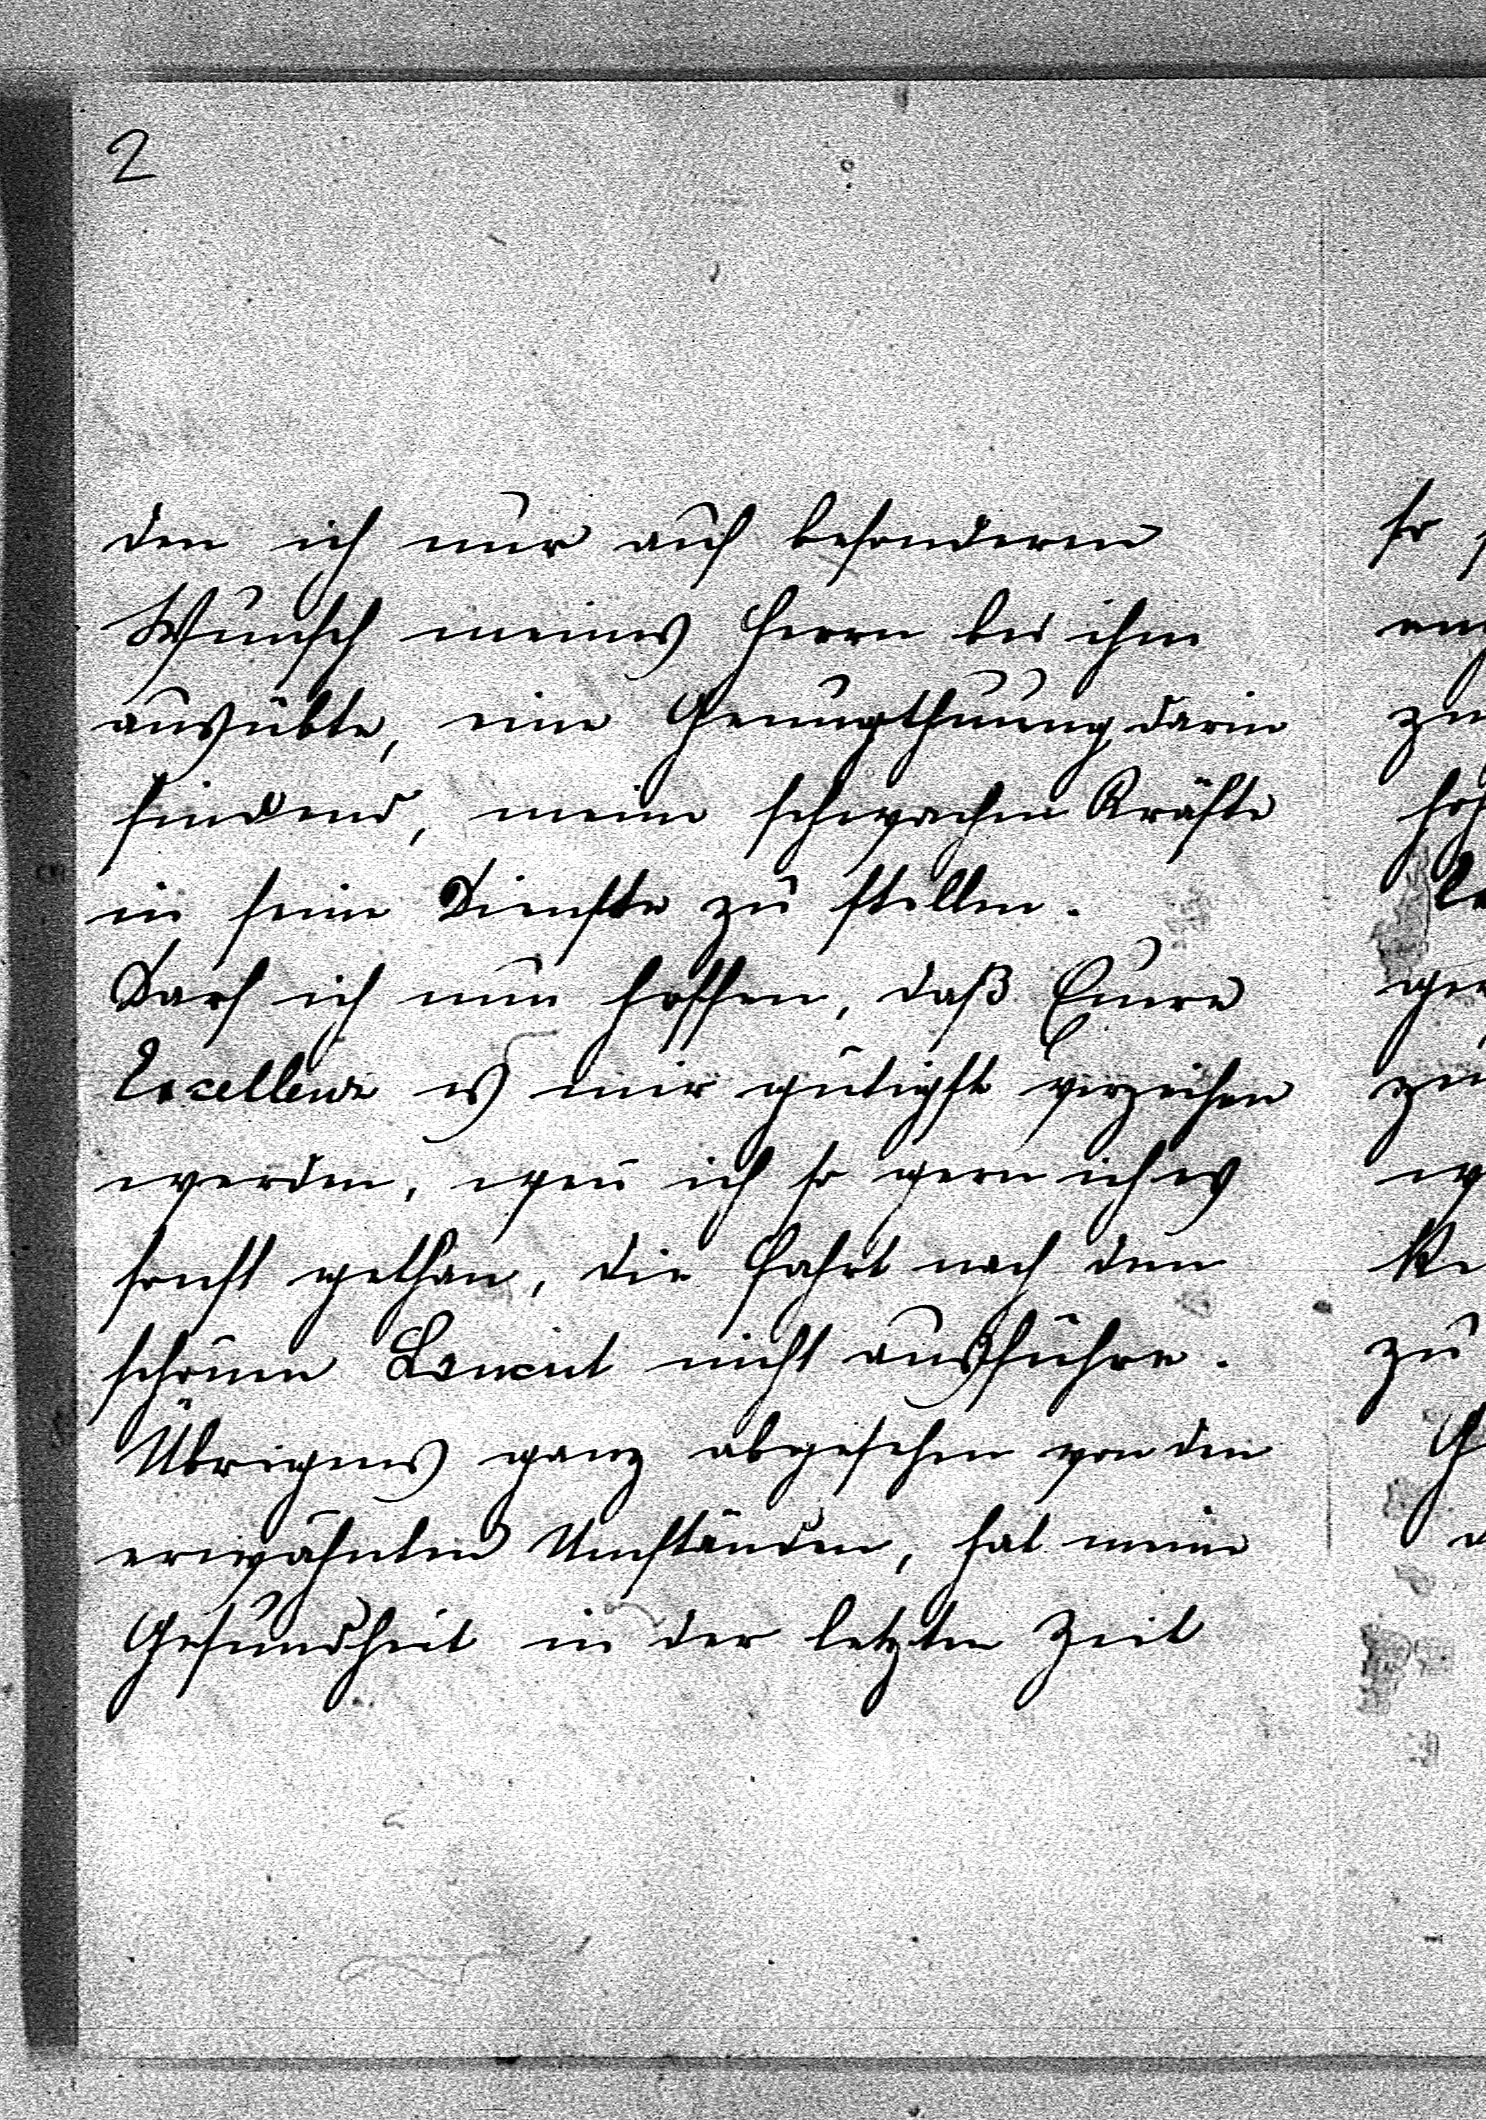 2
den ich nur auf besonderen
Wunsch meines Herrn bei ihm
ausübte, eine Genugthuung darin
findend, meine schwachen Kräfte
in seine Dienste zu stellen.
Darf ich nun hoffen, daß Euere
Excellenz es mir gütigst verzeihen
werden, wen̄ ich so gern ich es
sonst gethan, die Fahrt nach dem
schönen Lancut nicht ausführe.
Übrigens ganz abgesehen von den
erwähnten Umständen, hat meine
Gesundheit in der letzten Zeit
so
zu
zu